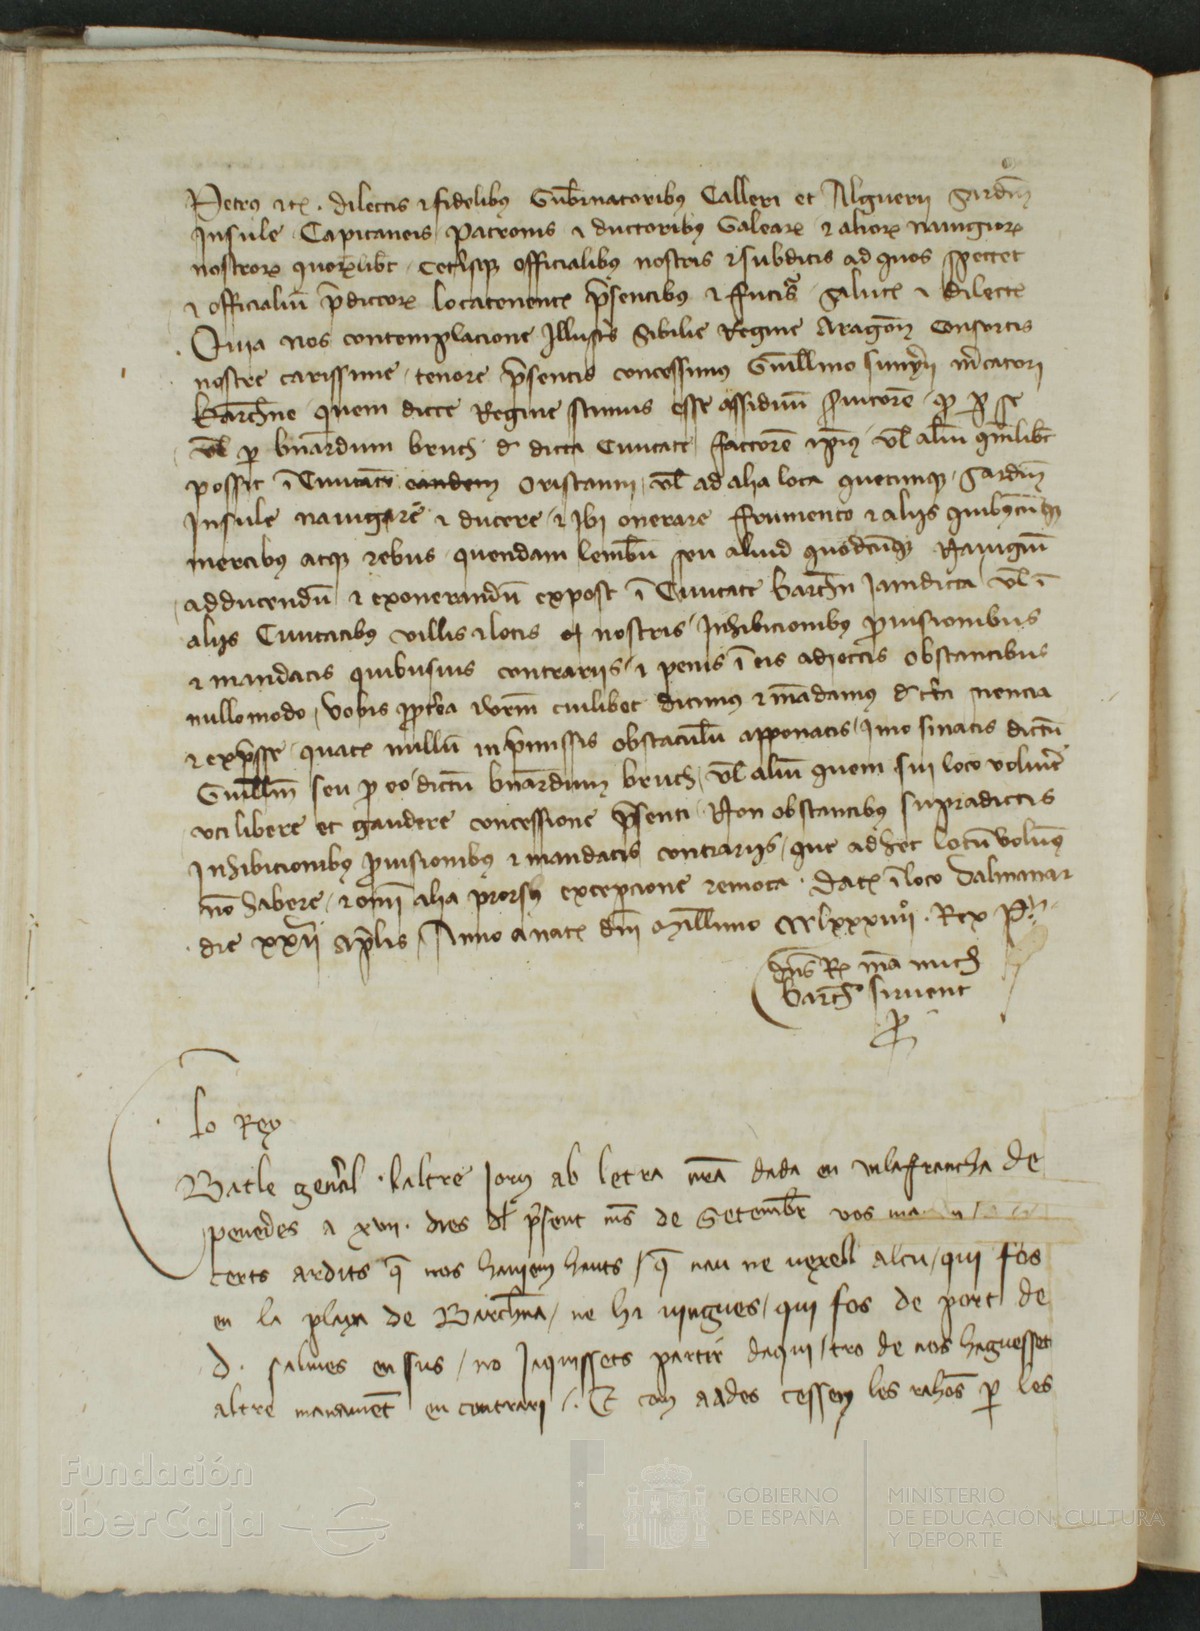 Petrus etc. dilectis et fidelibus Gubernatoribus Calleri et Algueri Sardinie
Insule Capitaneis patronis et ductoribus Galearum et aliorum navigiorum
nostrorum quorumlibet Ceterisque officialibus nostris et subditis ad quos spectet
et officialium predictorum locatenentibus presentibus et futuris Salutem et dilectionem
Quia nos contemplacione Illustris Sibilie Regine Aragonum Consortis
nostre carissime tenore presentis concessimus Guillelmo mercatori
Barchinone quem dicte Regine scimus esse assiduum servitorem quod per se
vel per bernardum bruch de dicta Civitate factorem ipsius vel alium quemlibet
possit in Civitatem eandem Oristanni vel ad alia loca quecumque Sardinie
Insule navigare et ducere et ibi onerare frumento et aliis quibuscumque
mercibus atque rebus quendam lembum seu aliud quodcumque Navigium
adducendum et exonerandum expost in Civitate Barchinone Jamdicta vel in
aliis Civitatibus villis et locis nostris Inhibicionibus provisionibus
et mandatis quibusvis contrariis et penis in eis adiectis obstantibus
nullomodo vobis propterea et vestrum cuilibet dicimus et mandamus de certa sciencia
et expresse quatenus nullum in premissis obstaculum apponatis Imo sinatis dictum
Guillelmum seu pro eo dictum bernardum bruch vel alium quem sui loco voluerit
uti libere et gaudere concessione presenti Non obstantibus supradictis
Inhibicionibus provisionibus et mandatis contrariis que ad hec locum volumus
non habere et omni alia prorsus excepcione remota. Datum in loco
die XXII Aprilis Anno a natu domini Millesimo CCCLXXXIIII. Rex P.
dominus Rex mandavit michi
Bartholomeo sirvent
Lo Rey
Batle general laltre Jorn ab letra nostra dada en vilafrancha de
penedes a XVII dies del present mes de Setembre vos
certs ardits que nos haviem hauts que nau ne vexell alcu qui fos
en la playa de Barchinona ne hi vingues qui fos de port de
D. salmes en sus no Jaquissets partir daqui tro de nos haguessets
altre manament en contrari. E com aades cessen les rahons per les